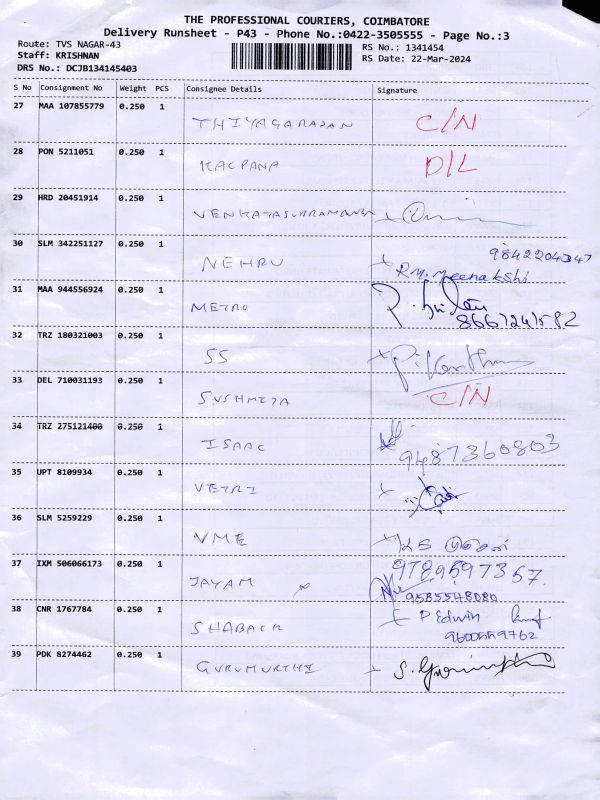 THE PROFESSIONAL COURIERS, COIMBATORE
Delivery Runsheet - P43 - Phone No.:0422-3505555 - Page No.:3
Route: TVS NAGAR-43
Staff: KRISHNAN
DRS No.: DCJB134145403
RS No.: 1341454
RS Date: 22-Mar-2024
S No Consignment No Weight PCS Consignee Details Signature
27 MAA 107855779 0.250 1 THIYAGARAJAN C/N
28 PON 5211051 0.250 1 KALPANA D/L
29 HRD 20451914 0.250 1 VENKATASUBRAMANI
30 SLM 342251127 0.250 1 NEHRU R.M. Meenakshi 9842204347
31 MAA 944556924 0.250 1 METRO 8667241582
32 TRZ 180321003 0.250 1 SS
33 DEL 710031193 0.250 1 SUSHMITA C/N
34 TRZ 275121400 0.250 1 ISAAC 9487360803
35 UPT 8109934 0.250 1 VETRI
36 SLM 5259229 0.250 1 VME
37 IXM 506066173 0.250 1 JAYAM 9789597367
9585548080
38 CNR 1767784 0.250 1 SHABACK P Edwin
39 PDK 8274462 0.250 1 GURUMURTHI